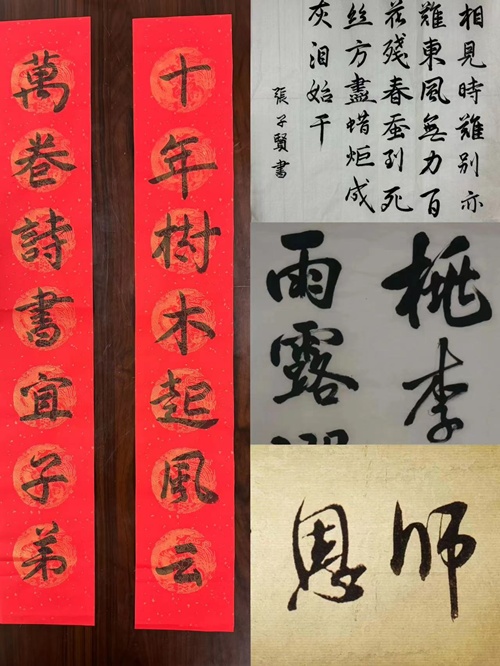 十年樹木起風云
萬卷詩書宜子弟
相見時難別亦
難東風無力百
花殘春蚕到死
絲方盡蜡炬成
灰泪始干
張子賢書
桃李
雨露
師恩